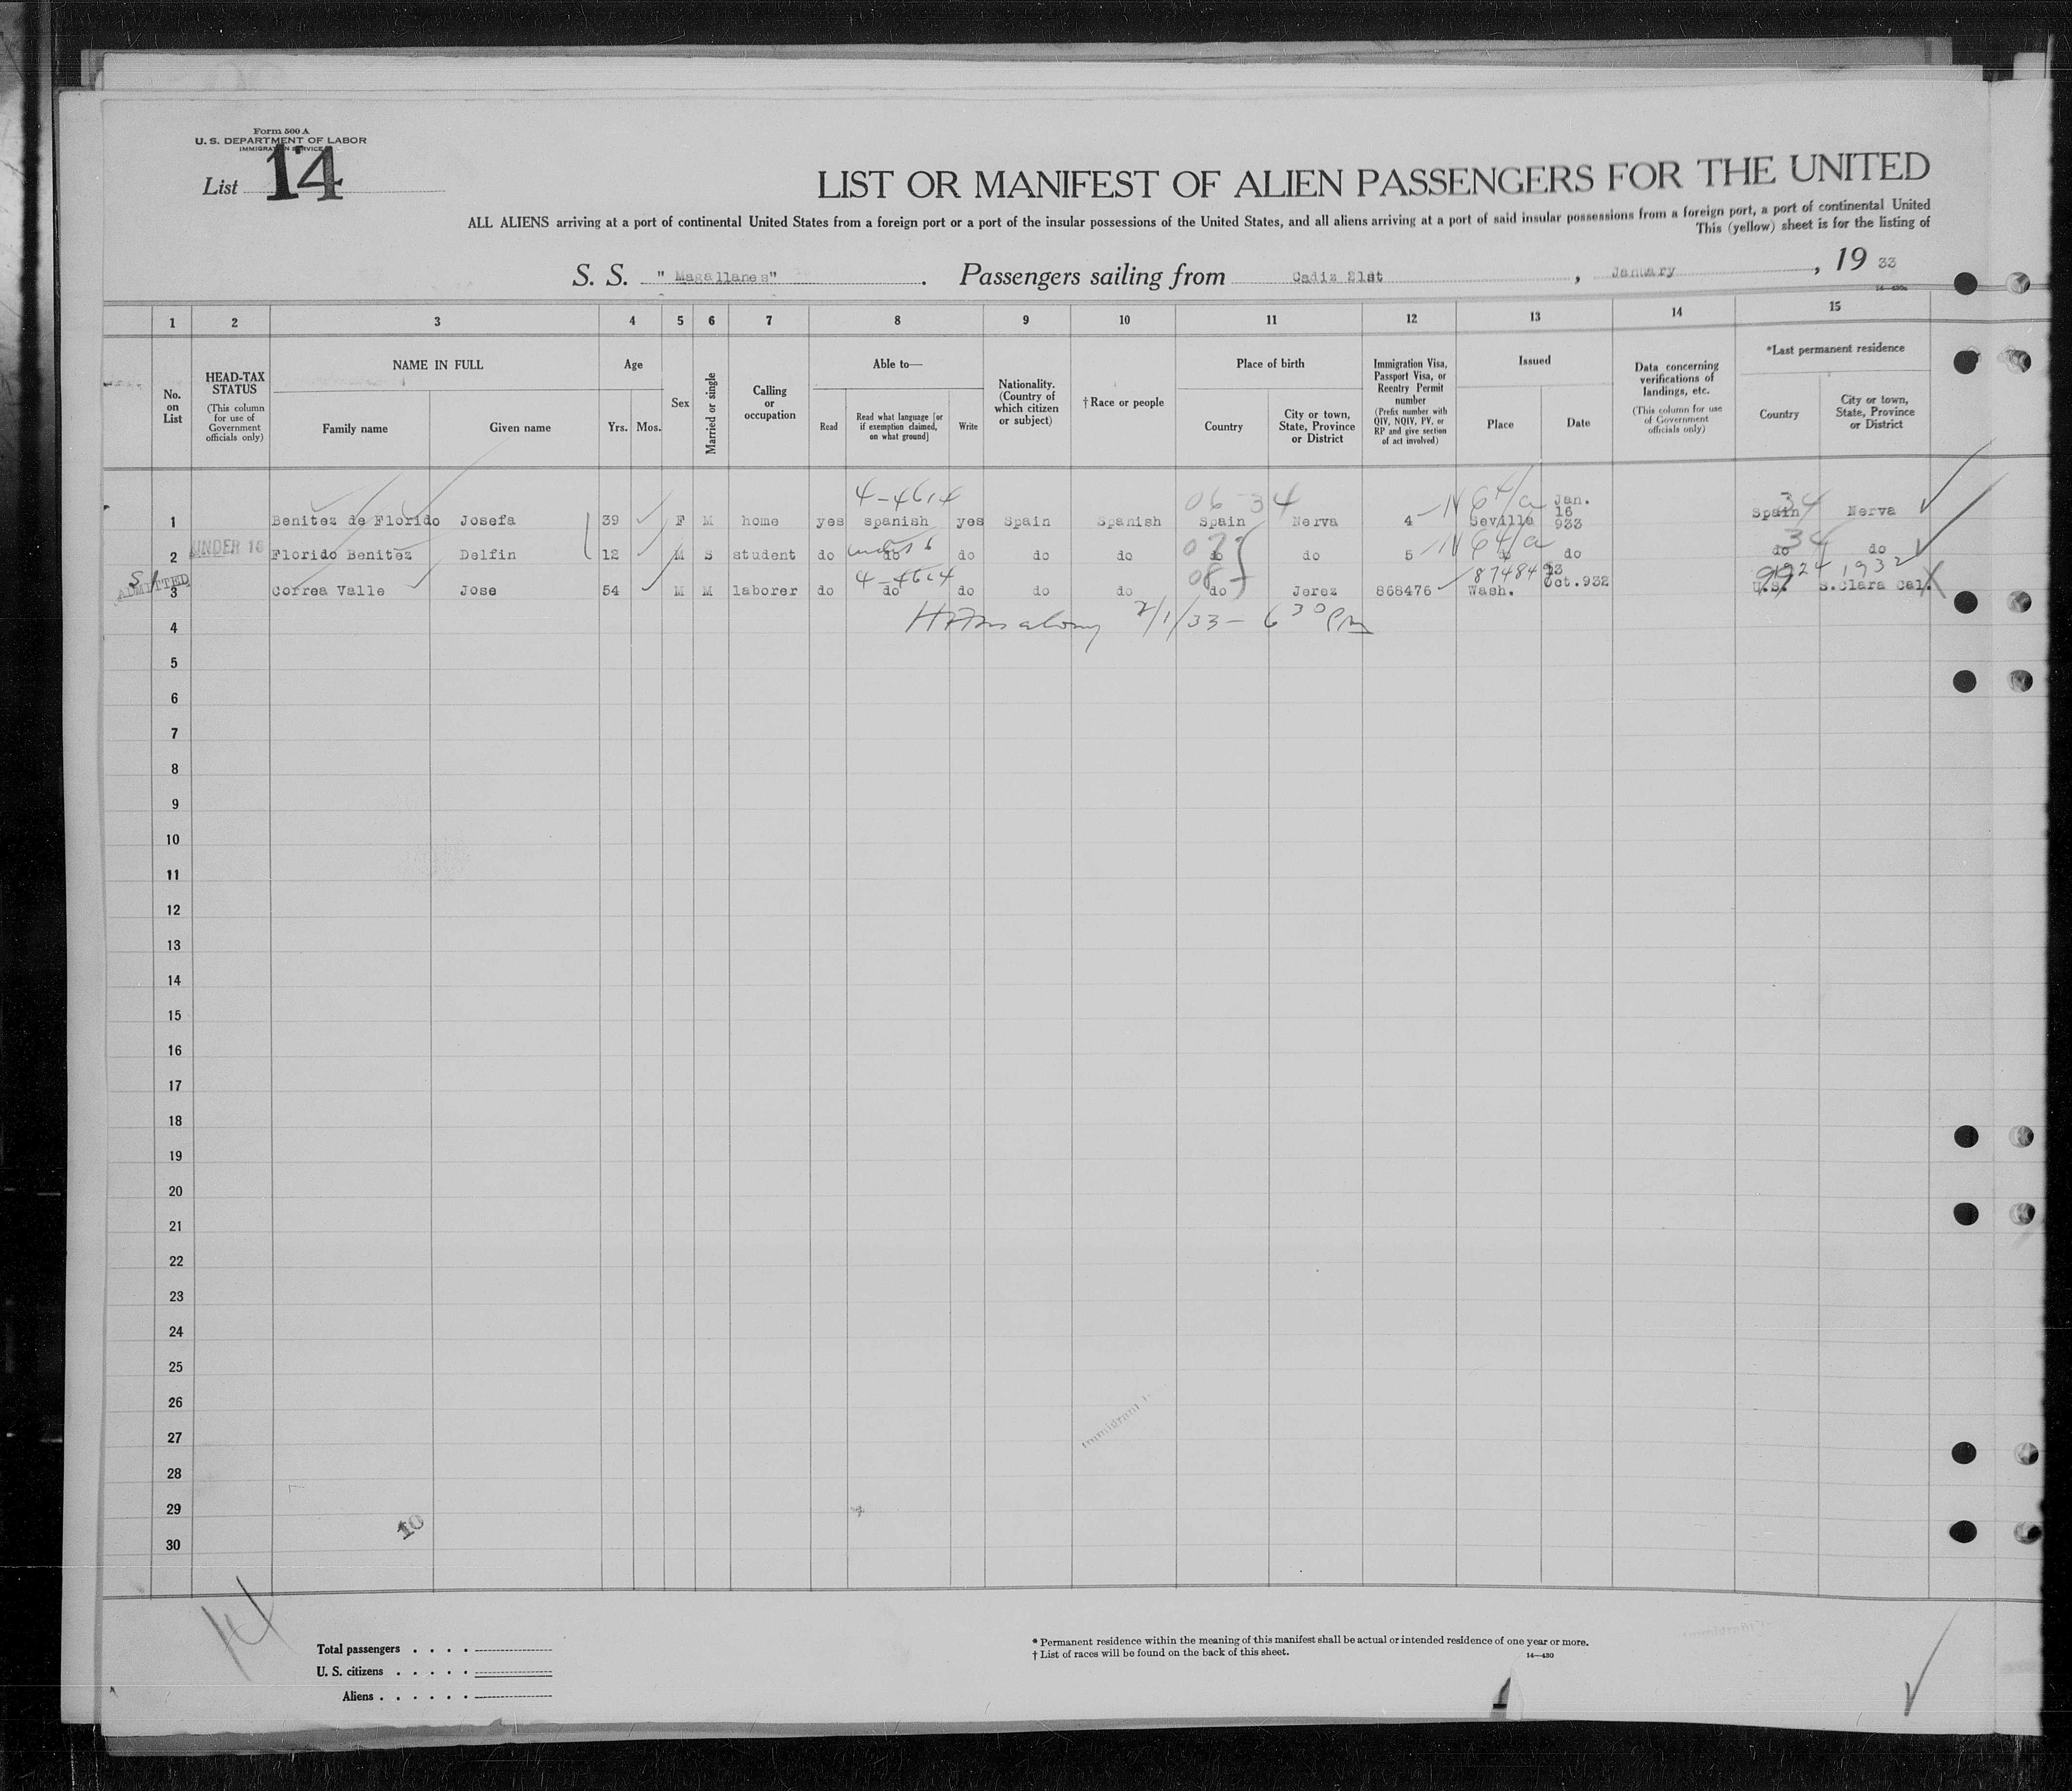 Form 500 A
U. S. DEPARTMENT OF LABOR
IMMIGRATION SERVICE
List 14
LIST OR MANIFEST OF ALIEN PASSENGERS FOR THE UNITED
ALL ALIENS arriving at a port of continental United States from a foreign port or a port of the insular possessions of the United States, and all aliens arriving at a port of said insular possessions from a foreign port, a port of continental United
This (yellow) sheet is for the listing of
S. S. "Magallanes". Passengers sailing from Cadiz 21st, January, 19 33
14—430a
1 2 3 4 5 6 7 8 9 10 11 12 13 14 15
No. on List
HEAD-TAX STATUS (This column for use of Government officials only)
NAME IN FULL
Family name
Given name
Age
Yrs. Mos.
Sex
Married or single
Calling or occupation
Able to—
Read
Read what language [or if exemption claimed, on what ground]
Write
Nationality. (Country of which citizen or subject)
†Race or people
Place of birth
Country
City or town, State, Province or District
Immigration Visa, Passport Visa, or Reentry Permit number (Prefix number with QIV, NQIV, PV, or RP and give section of act involved)
Issued
Place
Date
Data concerning verifications of landings, etc. (This column for use of Government officials only)
*Last permanent residence
Country
City or town, State, Province or District
4-4614 06 34 N 64/a 34
1 Benitez de Florido Josefa 39 F M home yes spanish yes Spain Spanish Spain Nerva 4 Seville Jan. 16 933 Spain Nerva
UNDER 16 under 16 07 N 64/a 34
2 Florido Benitez Delfin 12 M S student do do do do do do do 5 do do do do
ADMITTED 4-4614 08 87484 1924 1932
3 Correa Valle Jose 54 M M laborer do do do do do do Jerez 868476 Wash. 13 Oct.932 U.S. S.Clara Cal.
2/1/33 - 6 30 PM
4
5
6
7
8
9
10
11
12
13
14
15
16
17
18
19
20
21
22
23
24
25
26
27
28
29
30
Immigrant
10
14
Total passengers
U. S. citizens
Aliens
* Permanent residence within the meaning of this manifest shall be actual or intended residence of one year or more.
† List of races will be found on the back of this sheet.
14—430